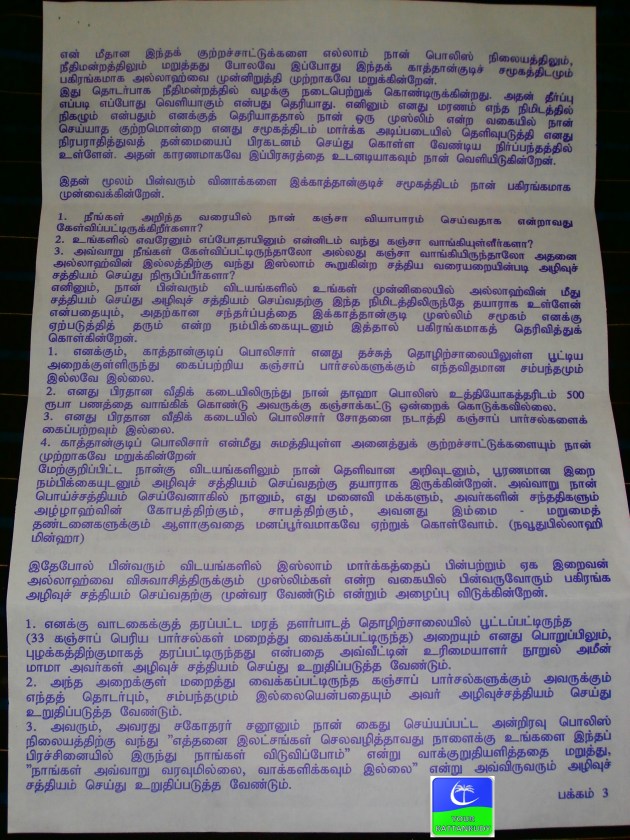 என் மீதான இந்தக் குற்றச்சாட்டுக்களை எல்லாம் நான் பொலிஸ் நிலையத்திலும்,
நீதிமன்றத்திலும் மறுத்தது போலவே இப்போது இந்தக் காத்தான்குடிச் சமூகத்திடமும்
பகிரங்கமாக அல்லாஹ்வை முன்னிறுத்தி முற்றாகவே மறுக்கின்றேன்.
இது தொடர்பாக நீதிமன்றத்தில் வழக்கு நடைபெற்றுக் கொண்டிருக்கின்றது. அதன் தீர்ப்பு
எப்படி எப்போது வெளியாகும் என்பது தெரியாது. எனினும் எனது மரணம் எந்த நிமிடத்தில்
நிகழும் என்பதும் எனக்குத் தெரியாததால் நான் ஒரு முஸ்லிம் என்ற வகையில் நான்
செய்யாத குற்றமொன்றை எனது சமூகத்திடம் மார்க்க அடிப்படையில் தெளிவுபடுத்தி எனது
நிரபராதித்துவத் தன்மையைப் பிரகடனம் செய்து கொள்ள வேண்டிய நிர்ப்பந்தத்தில்
உள்ளேன். அதன் காரணமாகவே இப்பிரசுரத்தை உடனடியாகவும் நான் வெளியிடுகின்றேன்.
இதன் மூலம் பின்வரும் வினாக்களை இக்காத்தான்குடிச் சமூகத்திடம் நான் பகிரங்கமாக
முன்வைக்கின்றேன்.
1. நீங்கள் அறிந்த வரையில் நான் கஞ்சா வியாபாரம் செய்வதாக என்றாவது
கேள்விப்பட்டிருக்கிறீர்களா?
2. உங்களில் எவரேனும் எப்போதாயினும் என்னிடம் வந்து கஞ்சா வாங்கியுள்ளீர்களா?
3. அவ்வாறு நீங்கள் கேள்விப்பட்டிருந்தாலோ அல்லது கஞ்சா வாங்கியிருந்தாலோ அதனை
அல்லாஹ்வின் இல்லத்திற்கு வந்து இஸ்லாம் கூறுகின்ற சத்திய வரையறையின்படி அழிவுச்
சத்தியம் செய்து நிரூபிப்பீர்களா?
எனினும், நான் பின்வரும் விடயங்களில் உங்கள் முன்னிலையில் அல்லாஹ்வின் மீது
சத்தியம் செய்து அழிவுச் சத்தியம் செய்வதற்கு இந்த நிமிடத்திலிருந்தே தயாராக உள்ளேன்
என்பதையும், அதற்கான சந்தர்ப்பத்தை இக்காத்தான்குடி முஸ்லிம் சமூகம் எனக்கு
ஏற்படுத்தித் தரும் என்ற நம்பிக்கையுடனும் இத்தால் பகிரங்கமாகத் தெரிவித்துக்
கொள்கின்றேன்.
1. எனக்கும், காத்தான்குடிப் பொலிசார் எனது தச்சுத் தொழிற்சாலையிலுள்ள பூட்டிய
அறைக்குள்ளிருந்து கைப்பற்றிய கஞ்சாப் பார்சல்களுக்கும் எந்தவிதமான சம்பந்தமும்
இல்லவே இல்லை.
2. எனது பிரதான வீதிக் கடையிலிருந்து நான் தாஹா பொலிஸ் உத்தியோகத்தரிடம் 500
ரூபா பணத்தை வாங்கிக் கொண்டு அவருக்கு கஞ்சாக்கட்டு ஒன்றைக் கொடுக்கவில்லை.
3. எனது பிரதான வீதிக் கடையில் பொலிசார் சோதனை நடாத்தி கஞ்சாப் பார்சல்களைக்
கைப்பற்றவும் இல்லை.
4. காத்தான்குடிப் பொலிசார் என்மீது சுமத்தியுள்ள அனைத்துக் குற்றச்சாட்டுக்களையும் நான்
முற்றாகவே மறுக்கின்றேன்
மேற்குறிப்பிட்ட நான்கு விடயங்களிலும் நான் தெளிவான அறிவுடனும், பூரணமான இறை
நம்பிக்கையுடனும் அழிவுச் சத்தியம் செய்வதற்கு தயாராக இருக்கின்றேன். அவ்வாறு நான்
பொய்ச்சத்தியம் செய்வேனாகில் நானும், எது மனைவி மக்களும், அவர்களின் சந்ததிகளும்
அழ்ழாஹ்வின் கோபத்திற்கும், சாபத்திற்கும், அவனது இம்மை - மறுமைத்
தண்டனைகளுக்கும் ஆளாகுவதை மனப்பூர்வமாகவே ஏற்றுக் கொள்வோம். (நவூதுபில்லாஹி
மின்ஹா)
இதேபோல் பின்வரும் விடயங்களில் இஸ்லாம் மார்க்கத்தைப் பின்பற்றும் ஏக இறைவன்
அல்லாஹ்வை விசுவாசித்திருக்கும் முஸ்லிம்கள் என்ற வகையில் பின்வருவோரும் பகிரங்க
அழிவுச் சத்தியம் செய்வதற்கு முன்வர வேண்டும் என்றும் அழைப்பு விடுக்கின்றேன்.
1. எனக்கு வாடகைக்குத் தரப்பட்ட மரத் தளர்பாடத் தொழிற்சாலையில் பூட்டப்பட்டிருந்த
(33 கஞ்சாப் பெரிய பார்சல்கள் மறைத்து வைக்கப்பட்டிருந்த) அறையும் எனது பொறுப்பிலும்,
புழக்கத்திற்குமாகத் தரப்பட்டிருந்தது என்பதை அவ்வீட்டின் உரிமையாளர் நூறுல் அமீன்
மாமா அவர்கள் அழிவுச் சத்தியம் செய்து உறுதிப்படுத்த வேண்டும்.
2. அந்த அறைக்குள் மறைத்து வைக்கப்பட்டிருந்த கஞ்சாப் பார்சல்களுக்கும் அவருக்கும்
எந்தத் தொடர்பும், சம்பந்தமும் இல்லையென்பதையும் அவர் அழிவுச்சத்தியம் செய்து
உறுதிப்படுத்த வேண்டும்.
3. அவரும், அவரது சகோதரர் சனூனும் நான் கைது செய்யப்பட்ட அன்றிரவு பொலிஸ்
நிலையத்திற்கு வந்து "எத்தனை இலட்சங்கள் செலவழித்தாவது நாளைக்கு உங்களை இந்தப்
பிரச்சினையில் இருந்து நாங்கள் விடுவிப்போம்" என்று வாக்குறுதியளித்ததை மறுத்து,
"நாங்கள் அவ்வாறு வரவுமில்லை, வாக்களிக்கவும் இல்லை" என்று அவ்விருவரும் அழிவுச்
சத்தியம் செய்து உறுதிப்படுத்த வேண்டும்.
பக்கம் 3
YOUR
KATTANKUDY